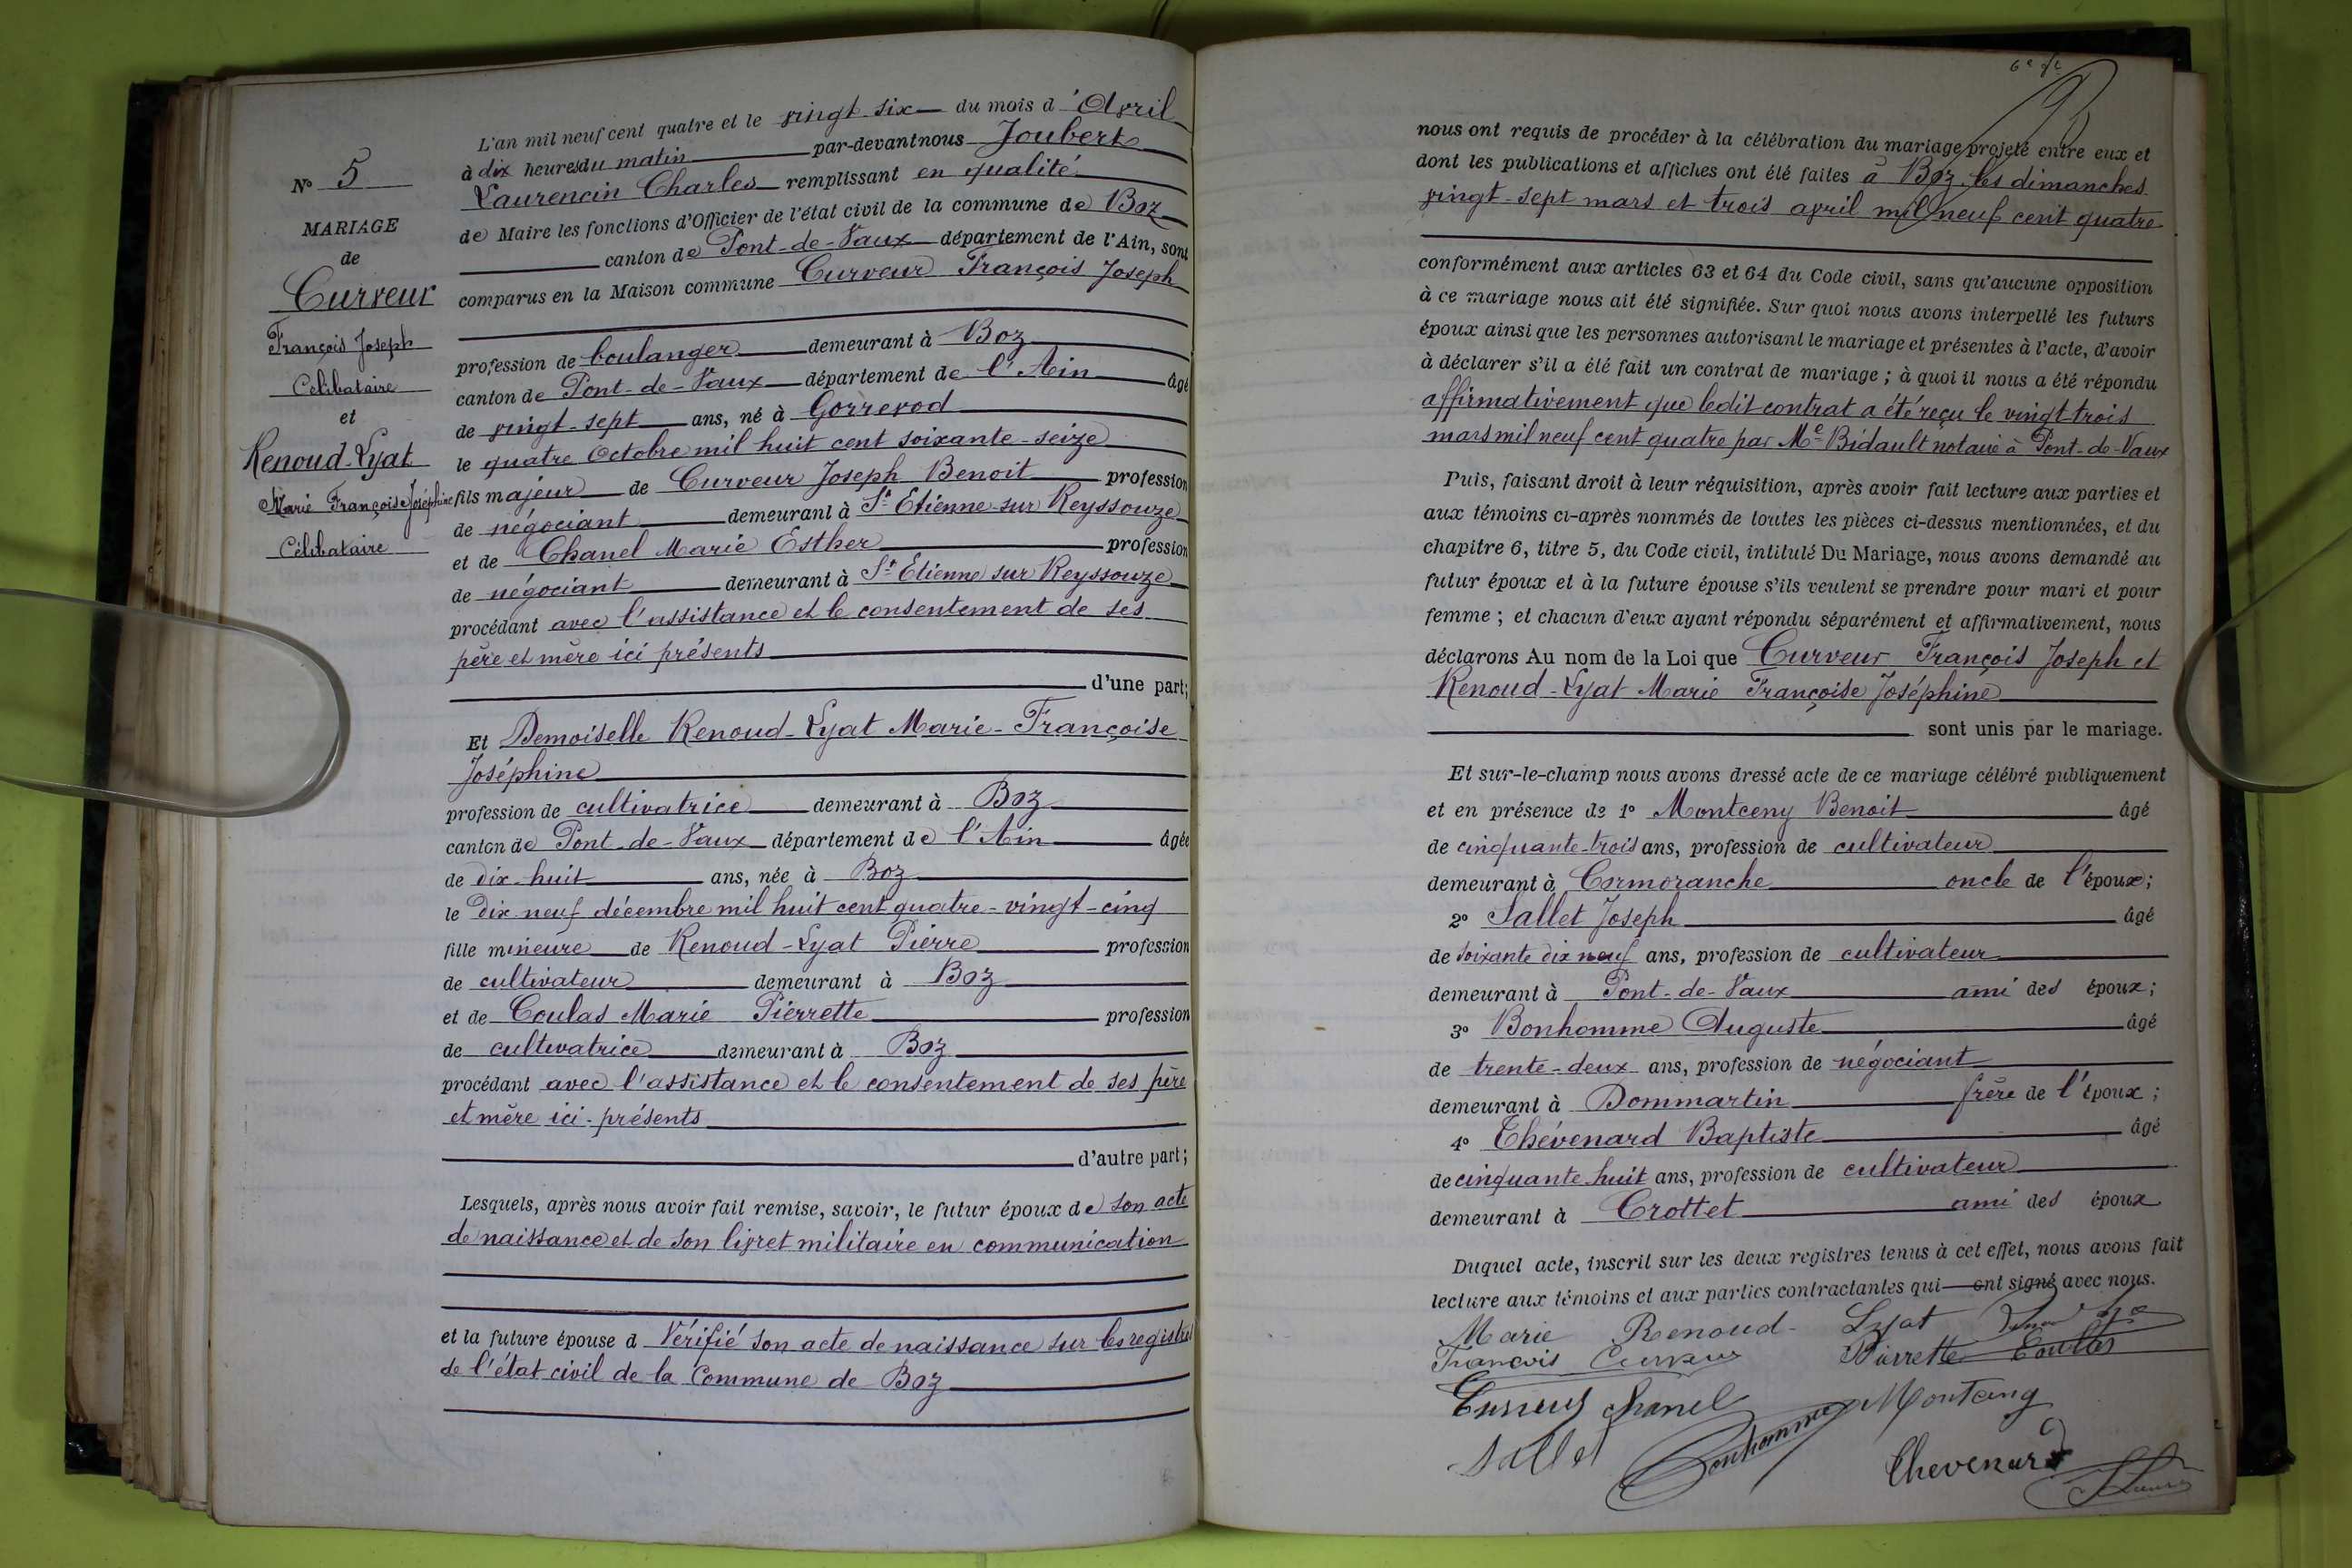 N° 5
MARIAGE
de
Curveur
François Joseph
Célibataire
et
Renoud-Lyat
Marie Françoise Joséphine
Célibataire
L'an mil neuf cent quatre et le vingt six du mois d'Avril
à dix heures du matin par-devant nous Joubert
Laurencin Charles remplissant en qualité
de Maire les fonctions d'Officier de l'état civil de la commune de Boz
canton de Pont-de-Vaux département de l'Ain, sont
comparus en la Maison commune Curveur François Joseph
profession de boulanger demeurant à Boz
canton de Pont-de-Vaux département de l'Ain âgé
de vingt-sept ans, né à Gorrevod
le quatre Octobre mil huit cent soixante-seize
fils majeur de Curveur Joseph Benoit profession
de négociant demeurant à St Etienne sur Reyssouze
et de Chanel Marie Esther profession
de négociant demeurant à St Etienne sur Reyssouze
procédant avec l'assistance et le consentement de ses
père et mère ici présents
d'une part;
Et Demoiselle Renoud-Lyat Marie-Françoise
Joséphine
profession de cultivatrice demeurant à Boz
canton de Pont-de-Vaux département de l'Ain âgée
de dix-huit ans, née à Boz
le dix neuf décembre mil huit cent quatre-vingt-cinq
fille mineure de Renoud-Lyat Pierre profession
de cultivateur demeurant à Boz
et de Coulas Marie Pierrette profession
de cultivatrice demeurant à Boz
procédant avec l'assistance et le consentement de ses père
et mère ici-présents
d'autre part;
Lesquels, après nous avoir fait remise, savoir, le futur époux de son acte
de naissance et de son livret militaire en communication
et la future épouse a Vérifié son acte de naissance sur les registres
de l'état civil de la Commune de Boz
nous ont requis de procéder à la célébration du mariage projeté entre eux et
dont les publications et affiches ont été faites à Boz les dimanches
vingt-sept mars et trois avril mil neuf cent quatre
conformément aux articles 63 et 64 du Code civil, sans qu'aucune opposition
à ce mariage nous ait été signifiée. Sur quoi nous avons interpellé les futurs
époux ainsi que les personnes autorisant le mariage et présentes à l'acte, d'avoir
à déclarer s'il a été fait un contrat de mariage ; à quoi il nous a été répondu
affirmativement que ledit contrat a été reçu le vingt trois
mars mil neuf cent quatre par Me Bidault notaire à Pont-de-Vaux
Puis, faisant droit à leur réquisition, après avoir fait lecture aux parties et
aux témoins ci-après nommés de toutes les pièces ci-dessus mentionnées, et du
chapitre 6, titre 5, du Code civil, intitulé Du Mariage, nous avons demandé au
futur époux et à la future épouse s'ils veulent se prendre pour mari et pour
femme ; et chacun d'eux ayant répondu séparément et affirmativement, nous
déclarons Au nom de la Loi que Curveur François Joseph et
Renoud-Lyat Marie Françoise Joséphine
sont unis par le mariage.
Et sur-le-champ nous avons dressé acte de ce mariage célébré publiquement
et en présence de 1° Montceny Benoit âgé
de cinquante-trois ans, profession de cultivateur
demeurant à Cormoranche oncle de l'époux;
2° Sallet Joseph âgé
de soixante dix neuf ans, profession de cultivateur
demeurant à Pont-de-Vaux ami des époux;
3° Bonhomme Auguste âgé
de trente-deux ans, profession de négociant
demeurant à Dommartin frère de l'époux;
4° Thévenard Baptiste âgé
de cinquante-huit ans, profession de cultivateur
demeurant à Crottet ami des époux
Duquel acte, inscrit sur les deux registres tenus à cet effet, nous avons fait
lecture aux témoins et aux parties contractantes qui ont signé avec nous.
Marie Renoud-Lyat
François Curveur Pierrette Coullas
Curveur Chanel Montceny
Sallet Bonhomme
Thevenard